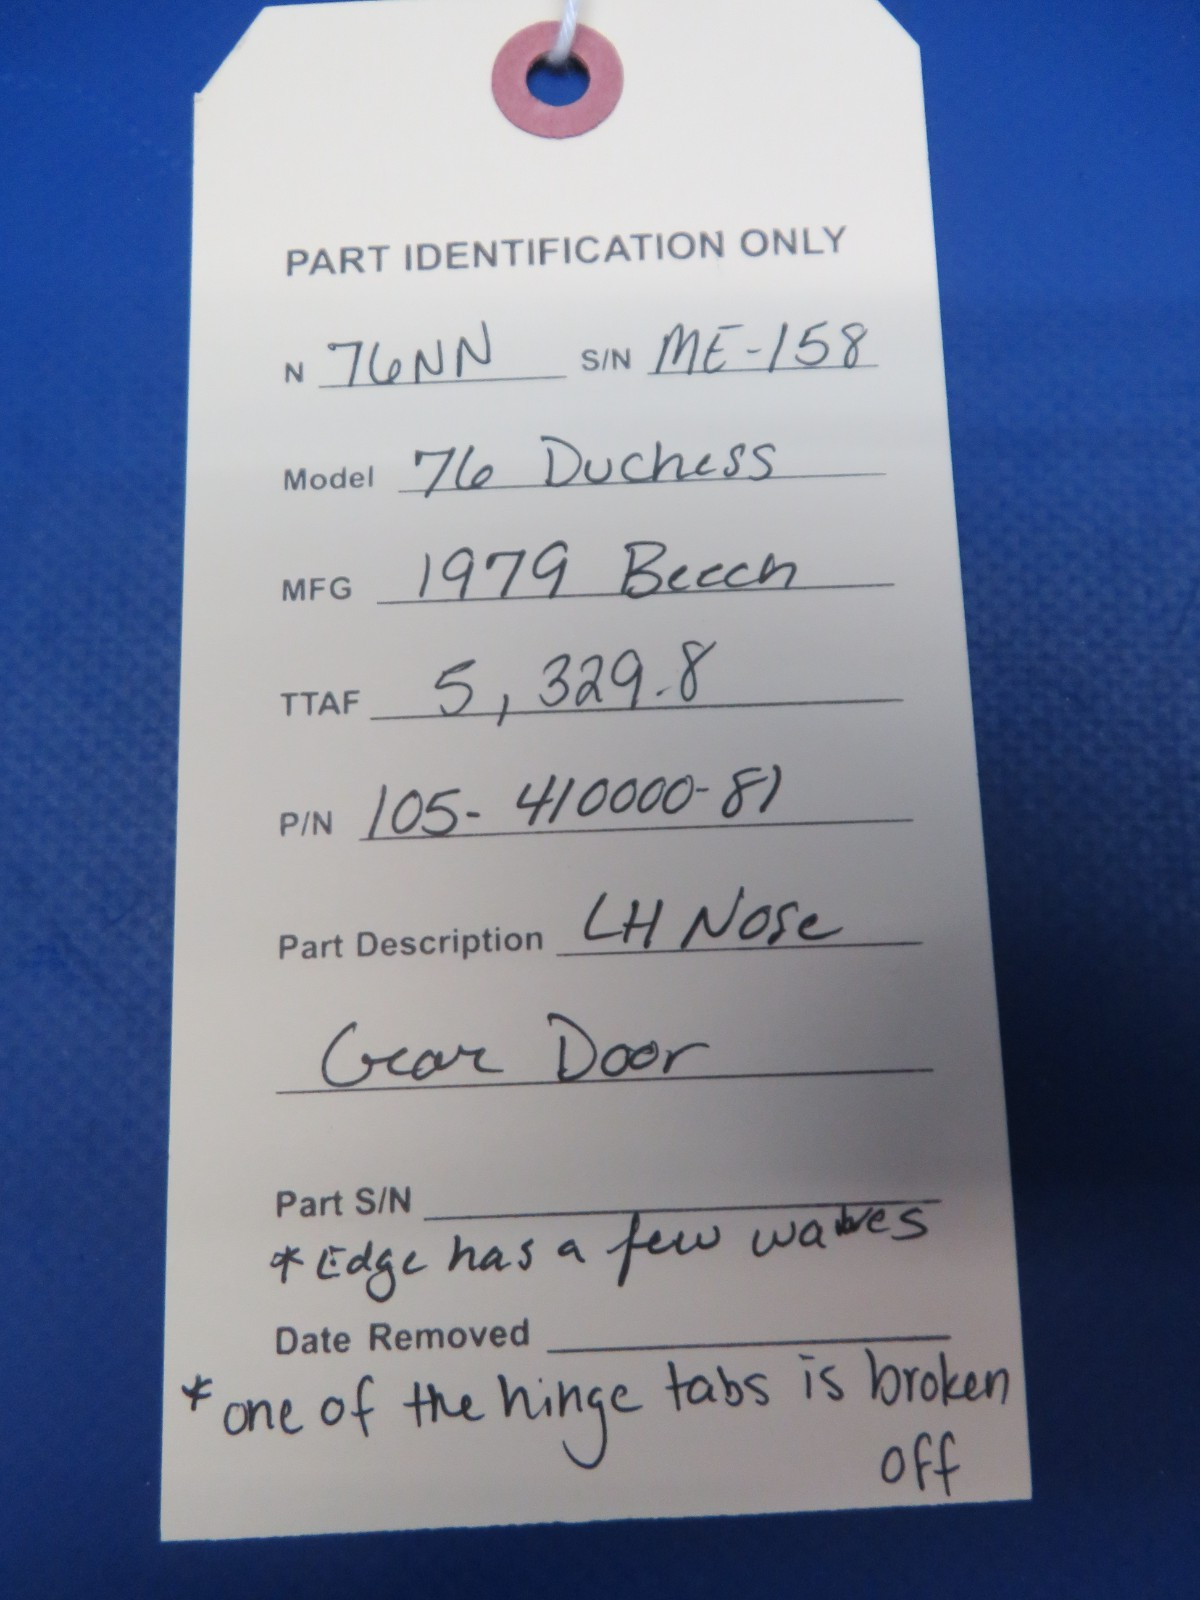 PART IDENTIFICATION ONLY
N 76NN S/N ME-158
Model 76 Duchess
MFG 1979 Beech
TTAF 5,329.8
P/N 105-410000-81
Part Description LH Nose
Gear Door
Part S/N
* Edge has a few waves
Date Removed
* one of the hinge tabs is broken
off